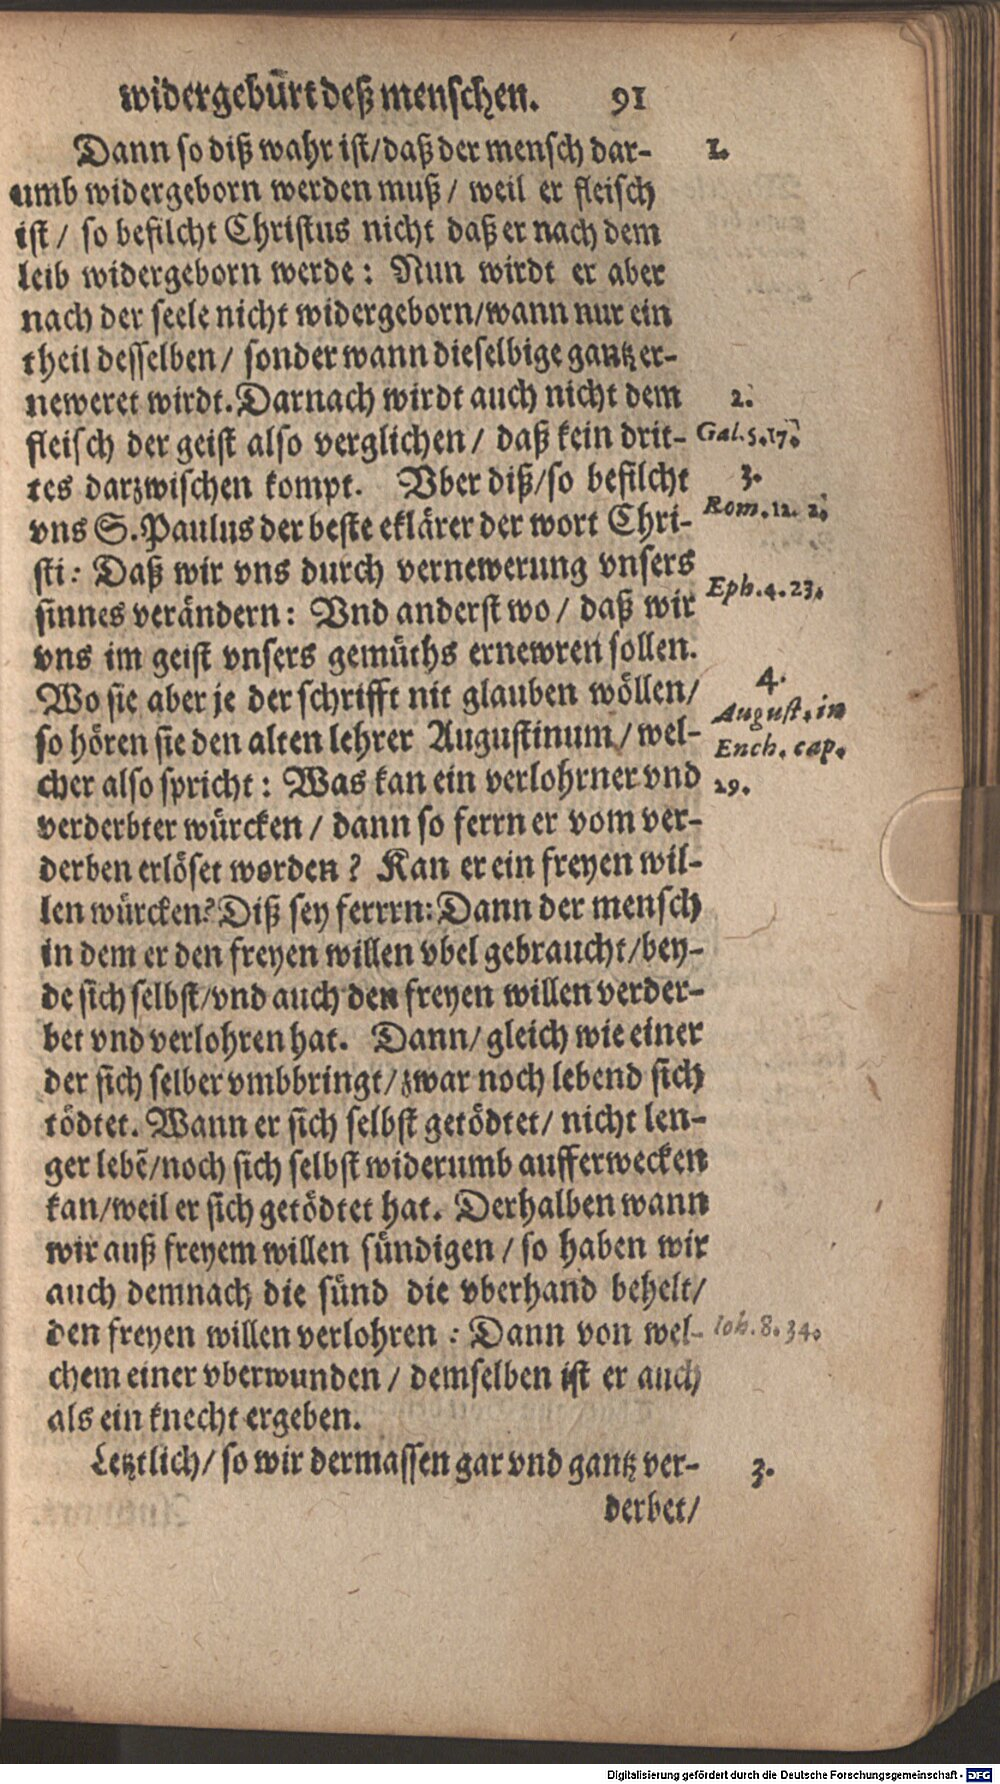 widergebürt deß menschen. 91
Dann so diß wahr ist/daß der mensch dar- 1.
umb widergeborn werden muß/ weil er fleisch
ist/ so befilcht Christus nicht daß er nach dem
leib widergeborn werde: Nun wirdt er aber
nach der seele nicht widergeborn/wann nur ein
theil desselben/ sonder wann dieselbige gantz er-
neweret wirdt. Darnach wirdt auch nicht dem 2.
fleisch der geist also verglichen/ daß kein drit- Gal. 5. 17.
tes darzwischen kompt. Vber diß/so befilcht 3.
vns S. Paulus der beste eklärer der wort Chri- Rom. 12. 2.
sti: Daß wir vns durch vernewerung vnsers
sinnes verändern: Vnd anderst wo/ daß wir Eph. 4. 23.
vns im geist vnsers gemüths ernewren sollen.
Wo sie aber je der schrifft nit glauben wöllen/ 4.
so hören sie den alten lehrer Augustinum/ wel- August. in
cher also spricht: Was kan ein verlohrner vnd Ench. cap.
verderbter würcken/ dann so ferrn er vom ver- 29.
derben erlöset worden? Kan er ein freyen wil-
len würcken? Diß sey ferrrn: Dann der mensch
in dem er den freyen willen vbel gebraucht/bey-
de sich selbst/vnd auch den freyen willen verder-
bet vnd verlohren hat. Dann/ gleich wie einer
der sich selber vmbbringt/zwar noch lebend sich
tödtet. Wann er sich selbst getödtet/ nicht len-
ger lebẽ/noch sich selbst widerumb aufferwecken
kan/weil er sich getödtet hat. Derhalben wann
wir auß freyem willen sündigen/ so haben wir
auch demnach die sünd die vberhand behelt/
den freyen willen verlohren: Dann von wel- Ioh. 8. 34.
chem einer vberwunden/ demselben ist er auch
als ein knecht ergeben.
Letztlich/ so wir dermassen gar vnd gantz ver- 3.
derbet/
Digitalisierung gefördert durch die Deutsche Forschungsgemeinschaft - DFG